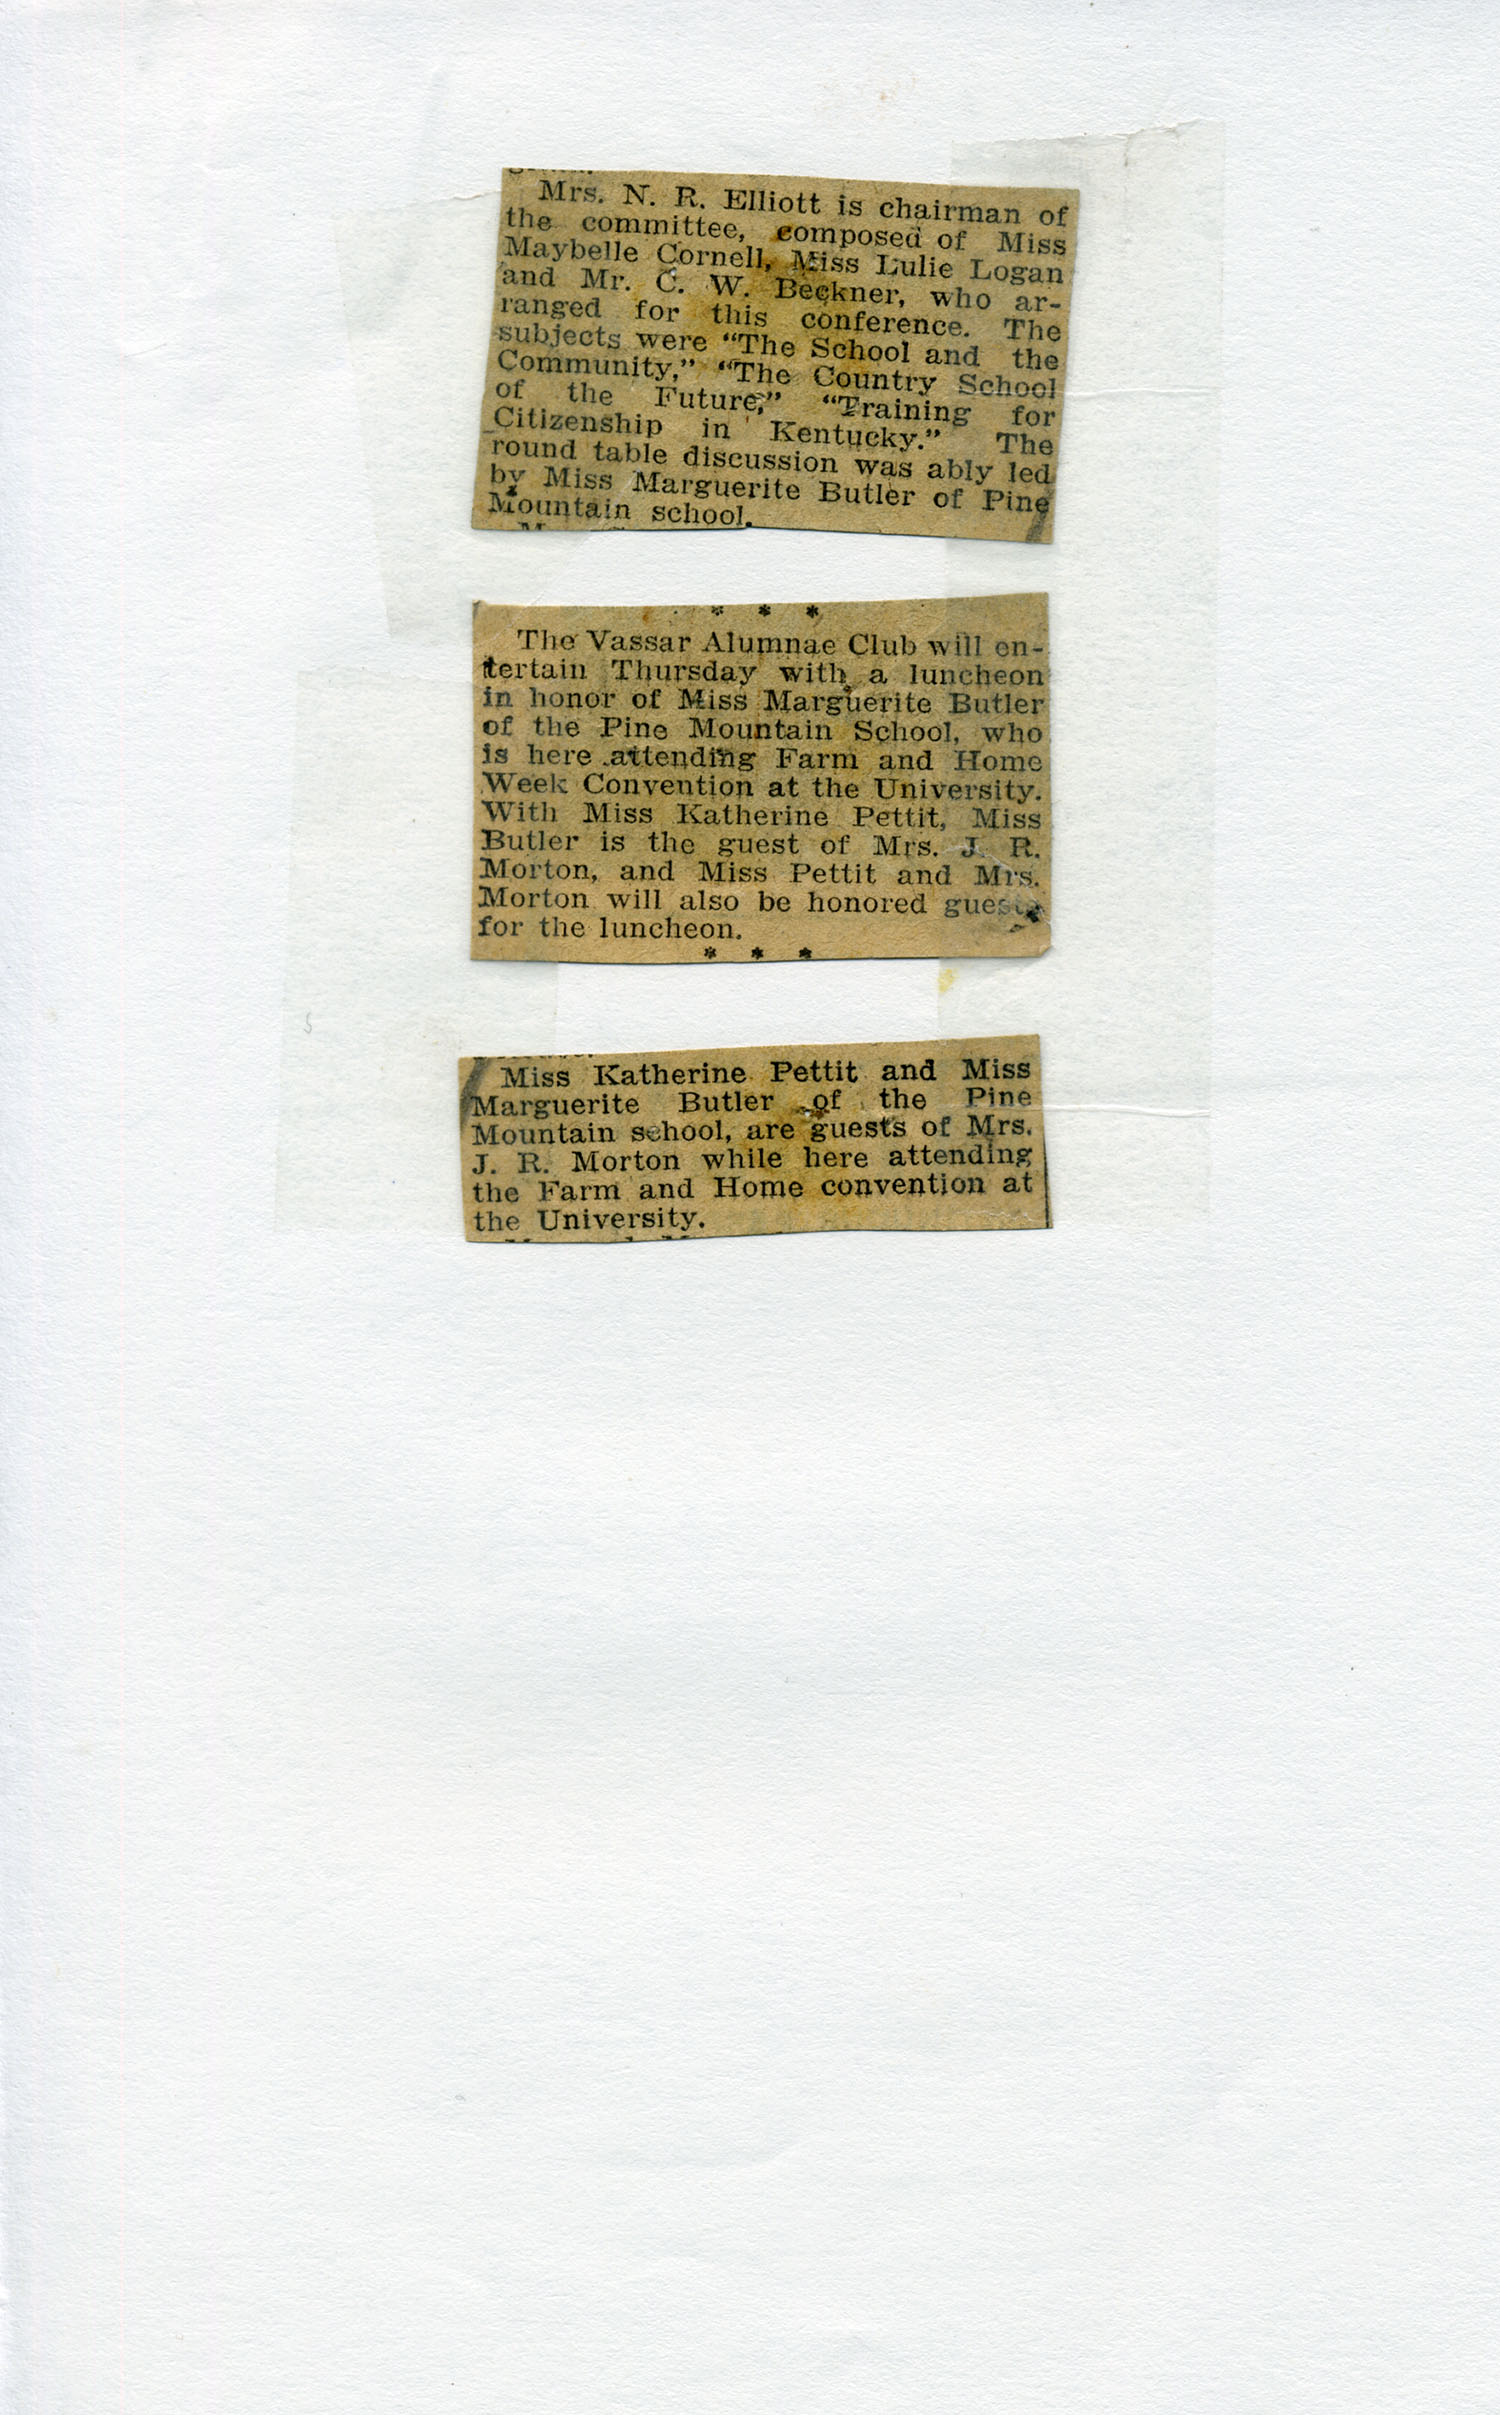 Mrs. N. R. Elliott is chairman of
the committee, composed of Miss
Maybelle Cornell, Miss Lulie Logan
and Mr. C. W. Beckner, who ar-
ranged for this conference. The
subjects were “The School and the
Community,” “The Country School
of the Future,” “Training for
Citizenship in Kentucky.” The
round table discussion was ably led
by Miss Marguerite Butler of Pine
Mountain school.
* * *
The Vassar Alumnae Club will en-
tertain Thursday with a luncheon
in honor of Miss Marguerite Butler
of the Pine Mountain School, who
is here attending Farm and Home
Week Convention at the University.
With Miss Katherine Pettit, Miss
Butler is the guest of Mrs. J. R.
Morton, and Miss Pettit and Mrs.
Morton will also be honored guests
for the luncheon.
* * *
Miss Katherine Pettit and Miss
Marguerite Butler of the Pine
Mountain school, are guests of Mrs.
J. R. Morton while here attending
the Farm and Home convention at
the University.